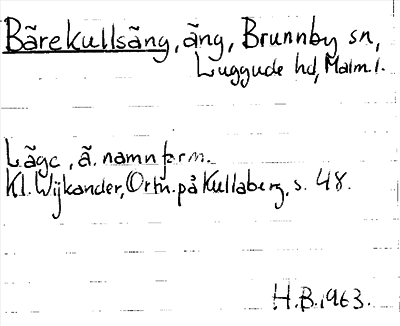 Bärekullsäng, äng, Brunnby sn,
Luggude hd, Malm.l.
Läge, ä. namnform.
Kl. Wijkander, Ortn. på Kullaberg, s. 48.
H.B. 1963.